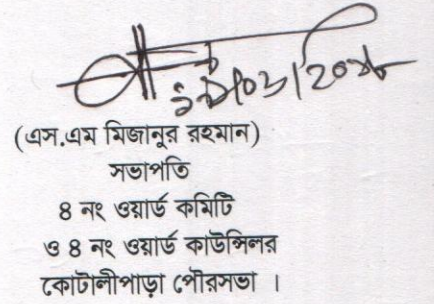 (এস.এম মিজানুর রহমান)
সভাপতি
৪ নং ওয়ার্ড কমিটি
ও ৪ নং ওয়ার্ড কাউন্সিলর
কোটালীপাড়া পৌরসভা ।